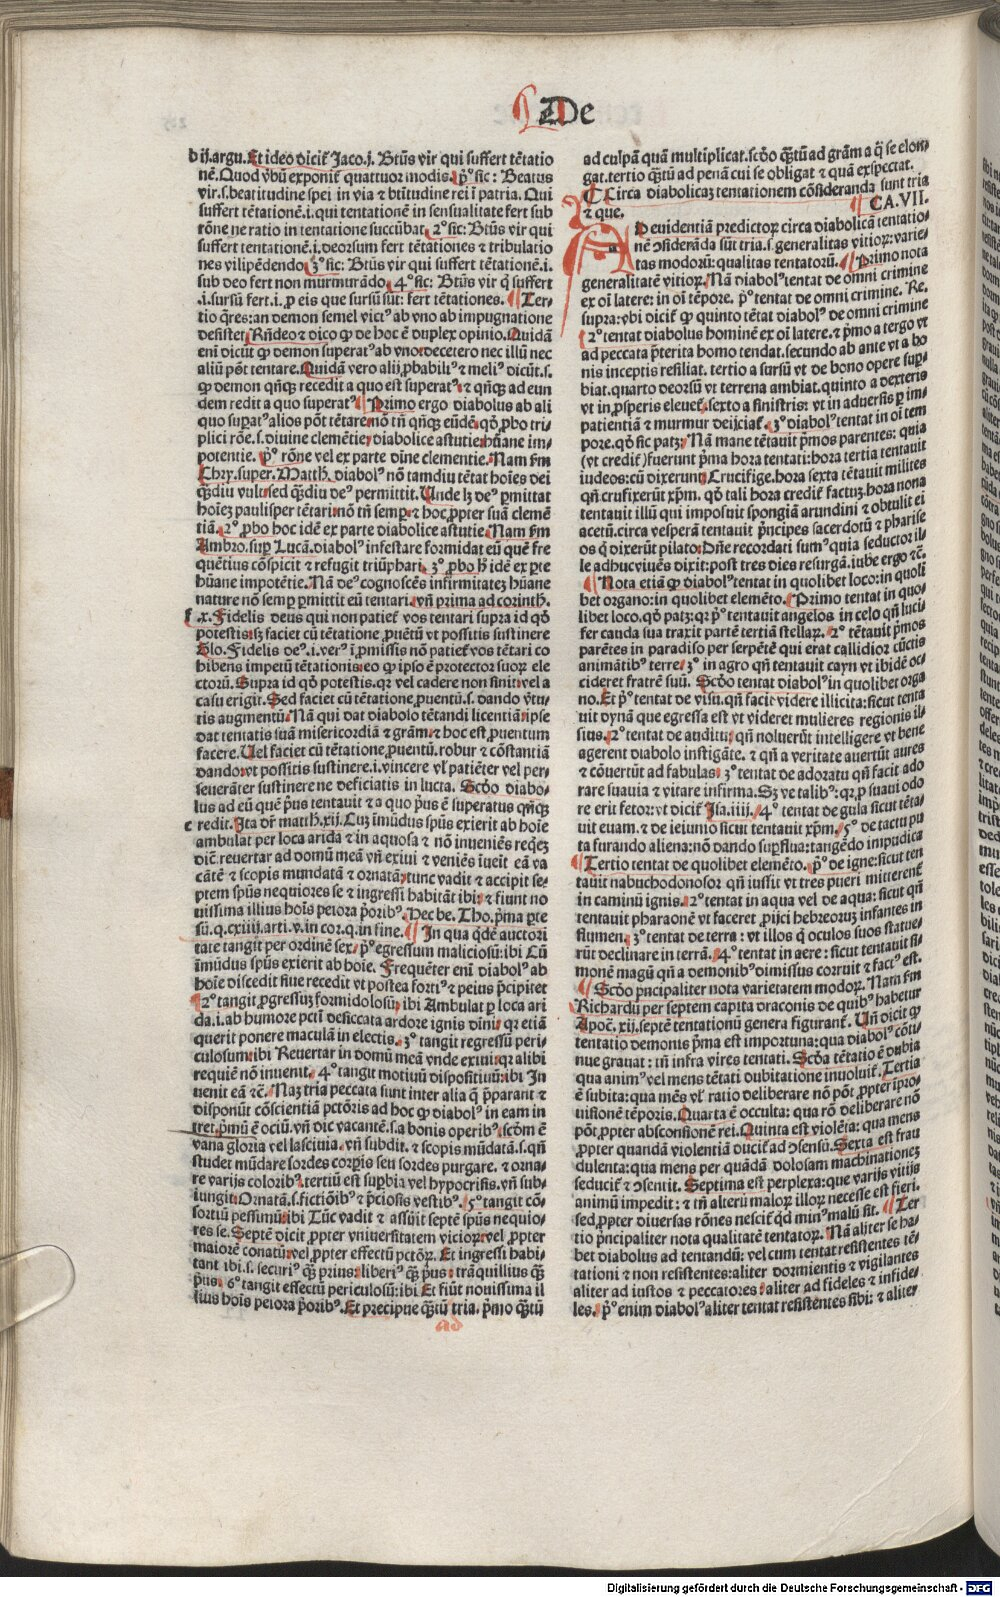 De
d ij.argu.Et ideo dicit̃ Jaco.j. Btũs vir qui suffert tẽtatio
nẽ.Quod ṽbũ exponit̃ quattuor modis.p̃ꝰ sic: Beatus
vir.s.beatitudine spei in via ⁊ btĩtudine rei ĩ patria. Qui
suffert tẽtationẽ.i.qui tentationẽ in sensualitate fert sub
rõne ne ratio in tentatione succũbat.2ꝰ sic: Btũs vir qui
suffert tentationẽ.i.deorsum fert tẽtationes ⁊ tribulatio
nes vilipẽdendo.3ꝰ sic: Btũs vir qui suffert tẽtationẽ.i.
sub deo fert non murmurãdo.4ꝰ sic: Btũs vir q̃ suffert
.i.sursũ fert.i.ꝓ eis que sursũ sũt: fert tẽtationes. Ter-
tio q̃res:an demon semel victꝰ ab vno ab impugnatione
desistet.Rñdeo ⁊ dico ꝙ de hoc ẽ duplex opinio.Quidã
enĩ dicũt ꝙ demon superatꝰ ab vno:decetero nec illũ nec
aliũ põt tentare.Quidã vero alij ꝓbabiliꝰ ⁊ meliꝰ dicũt.s.
ꝙ demon qñqꝫ recedit a quo est superatꝰ:⁊ qñqꝫ ad eun
dem redit a quo superatꝰ Primo ergo diabolus ab ali
quo suꝑatꝰ alios põt tẽtare:nõ tñ qñqꝫ eũdẽ:qõ ꝓbo tri-
plici rõe.s.diuine clemẽtie:diabolice astutie:hũane im-
potentie. p̃ꝰ rõne vel ex parte diñe clementie.Nam s̃m
Chry.super.Matth.diabolꝰ nõ tamdiu tẽtat hoĩes dei
q̃ꝫdiu vult:sed q̃ꝫdiu deꝰ permittit.Unde lꝫ deꝰ ꝑmittat
hoĩeꝫ paulisper tẽtari:nõ tñ semꝑ:⁊ hoc ꝓpter suã clemẽ
tiã.2ꝰ ꝓbo hoc idẽ ex parte diabolice astutie.Nam s̃m
Ambro.suꝑ Lucã.diabolꝰ infestare formidat eũ quẽ fre
quẽtius cõspicit ⁊ refugit triũphari.3ꝰ ꝓbo h̃ idẽ ex ꝑte
hũane impotẽtie. Nã deꝰ cognoscẽs infirmitateꝫ hũane
nature nõ semꝑ ꝑmittit eũ tentari.vñ prima ad corinth.
f .x.Fidelis deus qui non patiet̃ vos tentari supra id qõ
potestis:sꝫ faciet cũ tẽtatione ꝓuẽtũ vt possitis sustinere
Glo.Fidelis deꝰ.i.verꝰ ĩ ꝓmissis nõ patiet̃ vos tẽtari co
hibens impetũ tẽtationis:eo ꝙ ipso ẽ protector suoꝝ ele
ctorũ.Supra id qõ potestis.qꝛ vel cadere non sinit:vel a
casu erigit.Sed faciet cũ tẽtatione ꝓuentũ.s.dando ṽtu-
tis augmentũ.Nã qui dat diabolo tẽtandi licentiã:ipse
dat tentatis suã misericordiã ⁊ grãm:⁊ hoc est ꝓuentum
facere.Uel faciet cũ tẽtatione ꝓuentũ.robur ⁊ cõstantiã
dando:vt possitis sustinere.i.vincere vl̃ patiẽter vel per-
seuerãter sustinere ne deficiatis in lucta. Scõo diabo-
lus ad eũ quẽ p̃us tentauit ⁊ a quo p̃us ẽ superatus qñqꝫ
c redit.Ita dr̃ matth.xij.Cuꝫ ĩmũdus sp̃us exierit ab hoĩe
ambulat per loca arida ⁊ in aquosa ⁊ nõ inueniẽs reqẽꝫ
dic̃ reuertar ad domũ meã vñ exiui ⁊ veniẽs ĩueĩt eã va
cãtẽ ⁊ scopis mundatã ⁊ ornatã:tunc vadit ⁊ accipit se-
ptem sp̃us nequiores se ⁊ ingressi habitãt ibi:⁊ fiunt no
uissima illius hoĩs peiora p̃oribꝰ.Hec be.Tho.p̃ma ꝑte
sũ.q.cxiiij.arti.v.in cor.q.in fine. In qua q̃dẽ auctori
tate tangit per ordinẽ sex.p̃ꝰ egressum maliciosũ:ibi Cũ
ĩmũdus sp̃us exierit ab hoĩe. Frequẽter enĩ diabolꝰ ab
hoĩe discedit siue recedit vt postea fortiꝰ ⁊ peius p̃cipitet
2ꝰ tangit ꝓgressuꝫ formidolosũ:ibi Ambulat ꝑ loca ari
da.i.ab humore pctĩ desiccata ardore ignis dini:qꝛ etiã
querit ponere maculã in electis.3ꝰ tangit regressũ peri-
culosum:ibi Reuertar in domũ meã vnde exiui:qꝛ alibi
requiẽ nõ inuenit. 4ꝰ tangit motiuũ dispositiuũ:ibi In
uenit eã ⁊c̃. Naꝫ tria peccata sunt inter alia q̃ p̃parant ⁊
disponũt cõscientiã pctõris ad hoc ꝙ diabolꝰ in eam in
tret.p̃mũ ẽ ociũ.vñ dic̃ vacantẽ.s.a bonis operibꝰ.scõm ẽ
vana gloria vel lasciuia.vñ subdit.⁊ scopis mũdatã.s.qñ
studet mũdare sordes corꝑis seu sordes purgare.⁊ orna-
re varijs coloribꝰ.tertiũ est suꝑbia vel hypocrisis.vñ sub-
iungit:Ornatã.s.fictiõibꝰ ⁊ p̃ciosis vestibꝰ.5ꝰ tangit cõ-
sortiũ pessimũ:ibi Tũc vadit ⁊ assũit septẽ sp̃us nequio-
res se.Septẽ dicit ꝓpter vniuersitatem vicioꝝ:vel ꝓpter
maiorẽ conatũ:vel ꝓpter effectũ pctõꝝ. Et ingressi habi-
tant ibi.s.securiꝰ q̃ꝫ prius:liberiꝰ q̃ꝫ p̃us:trãquillius q̃ꝫ
p̃us.6ꝰ tangit effectũ periculosũ:ibi Et fiũt nouissima il
lius hoĩs peiora p̃oribꝰ.Et precipue q̃ꝫtũ tria. p̃mo q̃ꝫtũ
ad
ad culpã quã multiplicat.scõo q̃ꝫtũ ad grãm a q̃ se elon-
gat.tertio q̃ꝫtũ ad penã cui se obligat ⁊ quã exspectat.
Circa diabolicaꝫ tentationem cõsideranda sunt tria
⁊ que. CA.VII.
AD euidentiã predictoꝝ circa diabolicã tentatio-
nẽ ↄsiderãda sũt tria.s.generalitas vitioꝝ:varie-
tas modorũ:qualitas tentatorũ. Primo nota
generalitatẽ vitioꝝ.Nã diabolꝰ tentat de omni crimine
ex oĩ latere:in oĩ tẽpore. p̃ꝰ tentat de omni crimine. Re.
supra:vbi dicit̃ ꝙ quinto tẽtat diabolꝰ de omni crimine
2ꝰ tentat diabolus hominẽ ex oĩ latere.⁊ p̃mo a tergo vt
ad peccata p̃terita homo tendat.secundo ab ante vt a bo
nis inceptis resiliat. tertio a sursũ vt de bono opere suꝑ-
biat.quarto deorsũ vt terrena ambiat.quinto a dexteris
vt in ꝓsperis eleuet̃.sexto a sinistris: vt in aduersis ꝑ im-
patientiã ⁊ murmur deijciat̃.3ꝰ diabolꝰ tentat in oĩ tem
pore.qõ sic patꝫ. Nã mane tẽtauit p̃mos parentes: quia
(vt credit̃)fuerunt p̃ma hora tentati:hora tertia tentauit
iudeos:cũ dixerunt Crucifige.hora sexta tẽtauit milites
qñ crufixerũt xp̃m. qõ tali hora credit̃ factuꝫ.hora nona
tentauit illũ qui imposuit spongiã arundini ⁊ obtulit ei
acetũ.circa vesperã tentauit p̃ncipes sacerdotũ ⁊ pharise
os q̃ dixerũt pilato:Dñe recordati sumꝰ quia seductor il-
le adhuc viuẽs dixit:post tres dies resurgã.iube ergo ⁊c̃.
Nota etiã ꝙ diabolꝰ tentat in quolibet loco:in quoli
bet organo:in quolibet elemẽto. Primo tentat in quo
libet loco.qõ patꝫ:qꝛ p̃ꝰ tentauit angelos in celo qñ luci-
fer cauda sua traxit partẽ tertiã stellaꝝ. 2ꝰ tẽtauit p̃mos
parẽtes in paradiso per serpẽtẽ qui erat callidior cũctis
animãtibꝰ terre.3ꝰ in agro qñ tentauit cayn vt ibidẽ oc-
cideret fratrẽ suũ. Scõo tentat diabolꝰ in quolibet orga
no.Et p̃ꝰ tentat de visu.qñ facit videre illicita:sicut tenta
uit dynã que egressa est vt videret mulieres regionis il-
sius.2ꝰ tentat de auditu:qñ noluerũt intelligere vt bene
agerent diabolo instigãte.⁊ qñ a veritate auertũt aures
⁊ cõuertũt ad fabulas.3ꝰ tentat de adoratu qñ facit ado
rare suauia ⁊ vitare infirma.Sꝫ ve talibꝰ:qꝛ ꝓ suaui odo
re erit fetor:vt dicit̃ Isa.iiij. 4ꝰ tentat de gula sicut tẽta-
uit euam.⁊ de ieiunio sicut tentauit xp̃m. 5ꝰ de tactu pu
ta furando aliena:nõ dando suꝑflua:tangẽdo impudica
Tertio tentat de quolibet elemẽto. p̃ꝰ de igne:sicut ten
tauit nabuchodonosor qñ iussit vt tres pueri mitterent̃
in caminũ ignis.2ꝰ tentat in aqua vel de aqua: sicut qñ
tentauit pharaonẽ vt faceret ꝓijci hebreoruꝫ infantes in
flumen.3ꝰ tentat de terra: vt illos q̃ oculos suos statue-
rũt declinare in terrã. 4ꝰ tentat in aere: sicut tentauit si-
monẽ magũ qñ a demonibꝰ dimissus corruit ⁊ factꝰ est.
Scõo pncipaliter nota varietatem modoꝝ. Nam s̃m
Richardũ per septem capita draconis de quibꝰ habetur
Apoc̃. xij.septẽ tentationũ genera figurant̃. Uñ dicit ꝙ
tentatio demonis p̃ma est importuna:qua diabolꝰ cõti-
nue grauat: tñ infra vires tentati. Scõa tẽtatio ẽ dubia
qua animꝰ vel mens tẽtati dubitatione inuoluit̃. Tertia
ẽ subita:qua mẽs vl̃ ratio deliberare nõ põt ꝓpter ĩpro-
uisionẽ tẽporis. Quarta ẽ occulta: qua rõ deliberare nõ
põt ꝓpter absconsionẽ rei. Quinta est violẽta: qua mens
ꝓpter quandã violentiã ducit̃ ad ↄsensũ. Sexta est frau
dulenta: qua mens per quãdã dolosam machinationeꝫ
seducit̃ ⁊ ↄsentit. Septima est perplexa: que varijs vitijs
animũ impedit: ⁊ tñ alterũ maloꝝ illoꝝ necesse est fieri.
sed ꝓpter diuersas rõnes nescit̃ q̃d minꝰ malũ sit. Ter
tio p̃ncipaliter nota qualitatẽ tentatoꝝ. Nã aliter se ha-
bet diabolus ad tentandũ: vel cum tentat resistentes tẽ-
tationi ⁊ non resistentes:aliter dormientis ⁊ vigilantes
aliter ad iustos ⁊ peccatores: aliter ad fideles ⁊ infide-
les. p̃ꝰ enim diabolꝰ aliter tentat resistentes sibi: ⁊ aliter
Digitalisierung gefördert durch die Deutsche Forschungsgemeinschaft - DFG